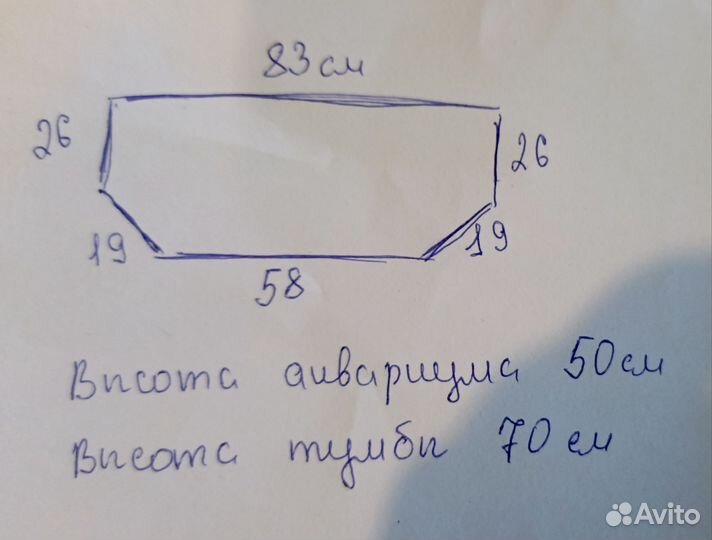 83 см
26
26
19
19
58
Высота аквариума 50 см
Высота тумбы 70 см
Avito